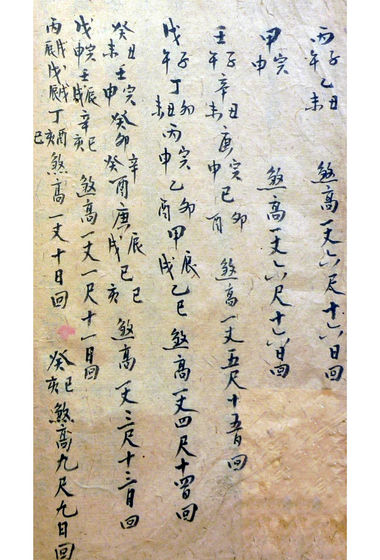 丙子午乙丑未煞高一丈六尺十六日回
甲寅申煞高一丈六尺十六日回
壬子午辛丑未庚寅申己卯酉煞高一丈五尺十五日回
戊子午丁卯丑未丙寅申乙卯酉甲辰戌乙巳煞高一丈四尺十四日回
癸丑未壬寅申癸卯辛癸酉庚辰戌己巳亥煞高一丈三尺十三日回
戊寅申壬辰戌辛巳亥煞高一丈一尺十一日回
丙戌辰戊戌辰丁酉亥巳煞高一丈十日回 癸巳亥煞高九尺九日回